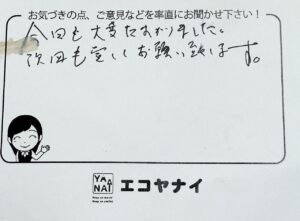 お気づきの点、ご意見などを率直にお聞かせ下さい!
今回も大変たすかりました。
次回も宜しくお願い致します。
YA
NAI
エコヤナイ